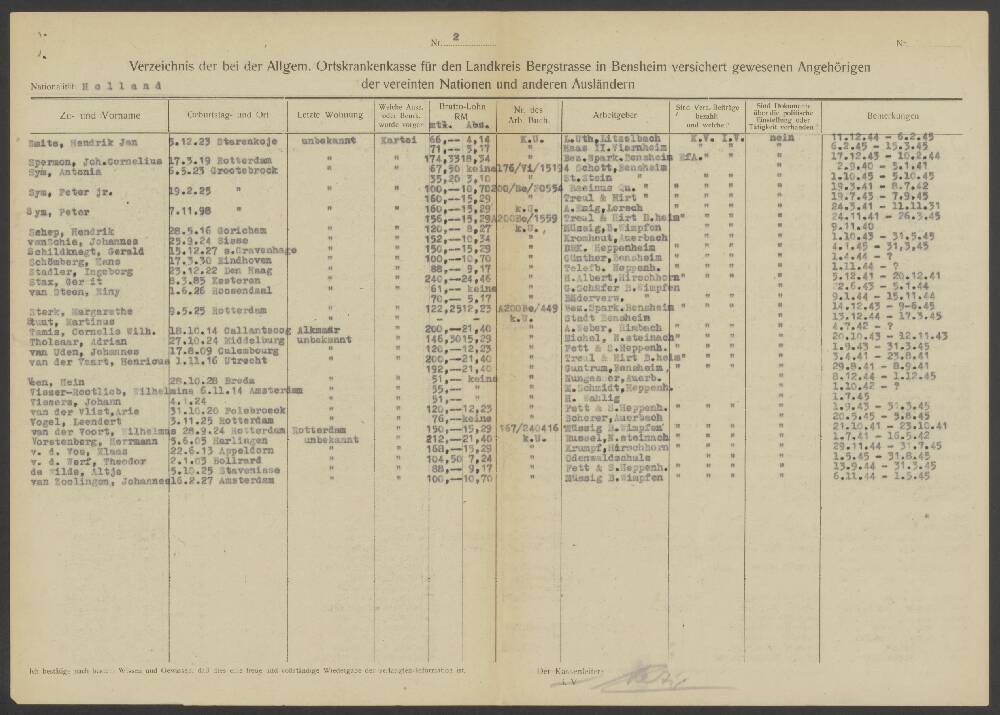 Nr. 2 Nr.
Verzeichnis der bei der Allgem. Ortskrankenkasse für den Landkreis Bergstrasse in Bensheim versichert gewesenen Angehörigen
Nationalität: Holland der vereinten Nationen und anderen Ausländern
Zu- und Vorname Geburtstag- und Ort Letzte Wohnung Welche Ausz. oder Bemk. wurde vorgez. Brutto-Lohn RM mtl. Abz. Nr. des Arb. Buch. Arbeitgeber Sind Verz. Beiträge bezahlt und welche? Sind Dokumente über die politische Einstellung oder Tätigkeit vorhanden Bemerkungen
Smits, Hendrik Jan 5.12.23 Starenkoje unbekannt Kartei 66,-- 4,14 K.U. L.Uth,Litzelbach K.V. I.V. nein 11.12.44 - 6.2.45
" 71,-- 5,17 " Haas II.Viernheim " " " 6.2.45 - 15.3.45
Spermon, Joh.Cornelius 17.3.19 Rotterdam " " 174,3318,34 " Bez.Spark.Bensheim EfA." " " 17.12.43 - 10.2.44
Sym, Antonia 6.5.23 Grootebroek " " 67,50 keine 176/Vi/15194 Schott,Bensheim " " 2.9.40 - 5.1.41
35,20 3,10 " St.Stein " " " " 1.10.45 - 5.10.45
Sym, Peter jr. 19.2.25 " " " 100,--10,70 200/Be/20554 Rasimus Qu. " " " " 19.3.41 - 8.7.42
160,--15,29 " Treul & Hirt " " " " 19.7.43 - 7.9.45
Sym, Peter 7.11.98 " " " 160,--15,29 k.U. A.Knig,Lorsch " " " " 24.3.41 - 11.11.31
156,--15,29 A200Be/1559 Treul & Hirt B.heim" " " " 24.11.41 - 26.3.45
Schep, Hendrik 28.5.16 Gorichem " " 120,-- 8,27 k.U. Müssig,B.Wimpfen " " " 9.11.40
vanSchie, Johannes 25.9.24 Sisse " " 152,--10,34 " Kromhout,Auerbach " " " " 1.10.43 - 31.5.45
Schildknegt, Gerald 15.12.27 s.Gravenhage " " 150,--15,29 " DEK. Heppenheim " " " " 4.1.45 - 31,3,45
Schömberg, Hans 17.3.30 Eindhoven " " 100,--10,70 " Günther,Bensheim " " " " 1.4.44 - ?
Stadler, Ingeborg 23.12.22 Den Haag " " 88,-- 9,17 " Telefb. Heppenh. " " " " 1.11.44 - ?
Stax, Ger it 8.3.85 Kesteren " " 240,--24,46 " H.Albert,Hirschhorn" " " " 5.12.41 - 20.12.41
van Steen, Riny 1.6.26 Roosendaal " " 61,-- keine " G.Schäfer B.Wimpfen " " " 22.6.43 - 5.1.44
70,-- 5,17 " Bäderverw. " " " " " 9.1.44 - 15.11.44
Sterk, Margarethe 9.5.25 Rotterdam " " 122,2512,23 A200Be/449 Bez.Spark.Bensheim " " " " 14.12.43 - 9-6.45
Stuut, Martinus " - k.U. Stadt Bensheim " " " " 13.12.44 - 17.3.45
Tamis, Cornelis Wilh. 18.10.14 Callantsoog Alkmaar " 200,--21,40 " A.Weber, Rimbach " " " " 4.7.42 - ?
Tholsaar, Adrian 27.10.24 Middelburg unbekannt " 146,3015,29 " Michel, N.steinach" " " " 20.10.43 - 12.11.43
van Uden, Johannes 17.8.09 Culembourg " " 120,--12,23 " Fett & S.Heppenh. " " " " 1.9.43 - 31.3.45
van der Vaart, Henricus 1.11.16 Utrecht " " 200,--21,40 " Treul & Hirt B.heim" " " " 3.4.41 - 23.8.41
192,--21,40 " Guntrum,Bensheim, " " " " 29.8.41 - 8.9.41
Veen, Hein 28.10.28 Breda " " 51,-- keine " Nungesser,Auerb. " " " 8.12.44 - 1.12.45
Visser-Rootlieb, Wilhelmina 6.11.14 Amsterdam " 55,-- " " M.Schmidt,Heppenh. " " 1.10.42 - ?
Vissers, Johann 4.1.24 " " 51,-- " " H. Wahlig " 1.7.45
van der Vlist,Arie 31.10.20 Polsbroeck " " 120,--12,23 " Fett & S.Heppenh. " " " " 1.9.43 - 31.3.45
Vogel, Leendert 3.11.25 Rotterdam " " 76,--keine " Scherer,Auerbach " " " " 20.5.45 - 3.8.45
van der Voort, Wilhelmus 28.9.24 Rotterdam Rotterdam " 150,--15,29 167/240416 Müssig B.Wimpfen " " " " 21.10.41 - 23.10.41
Vorstenberg, Herrmann 5.6.05 Harlingen unbekannt " 212,--21,40 k.U. Russel,N.steinach " " " " 1.7.41 - 16.5.42
v. d. Vos, Klaas 22.6.13 Appeldorn " " 168,--15,29 " Krumpf,Hirschhorn " " " " 29.11.44 - 31.7.45
v. d. Werf, Theodor 2.1.03 Bollrard " " 104,50 7,24 " Odenwaldschule " " " " 1.5.45 - 31.8.45
de Wilde, Altje 5.10.25 Stavenisse " " 88,-- 9,17 " Fett & S.Heppenh. " " " " 13.9.44 - 31.3.45
van Zoolingen, Johannes 16.2.27 Amsterdam " " 100,--10,70 " Müssig B.Wimpfen " " " " 6.11.44 - 1.5.45
Ich bestätige nach bestem Wissen und Gewissen, daß dies eine treue und vollständige Wiedergabe der verlangten Information ist. Der Kassenleiter:
i. V.